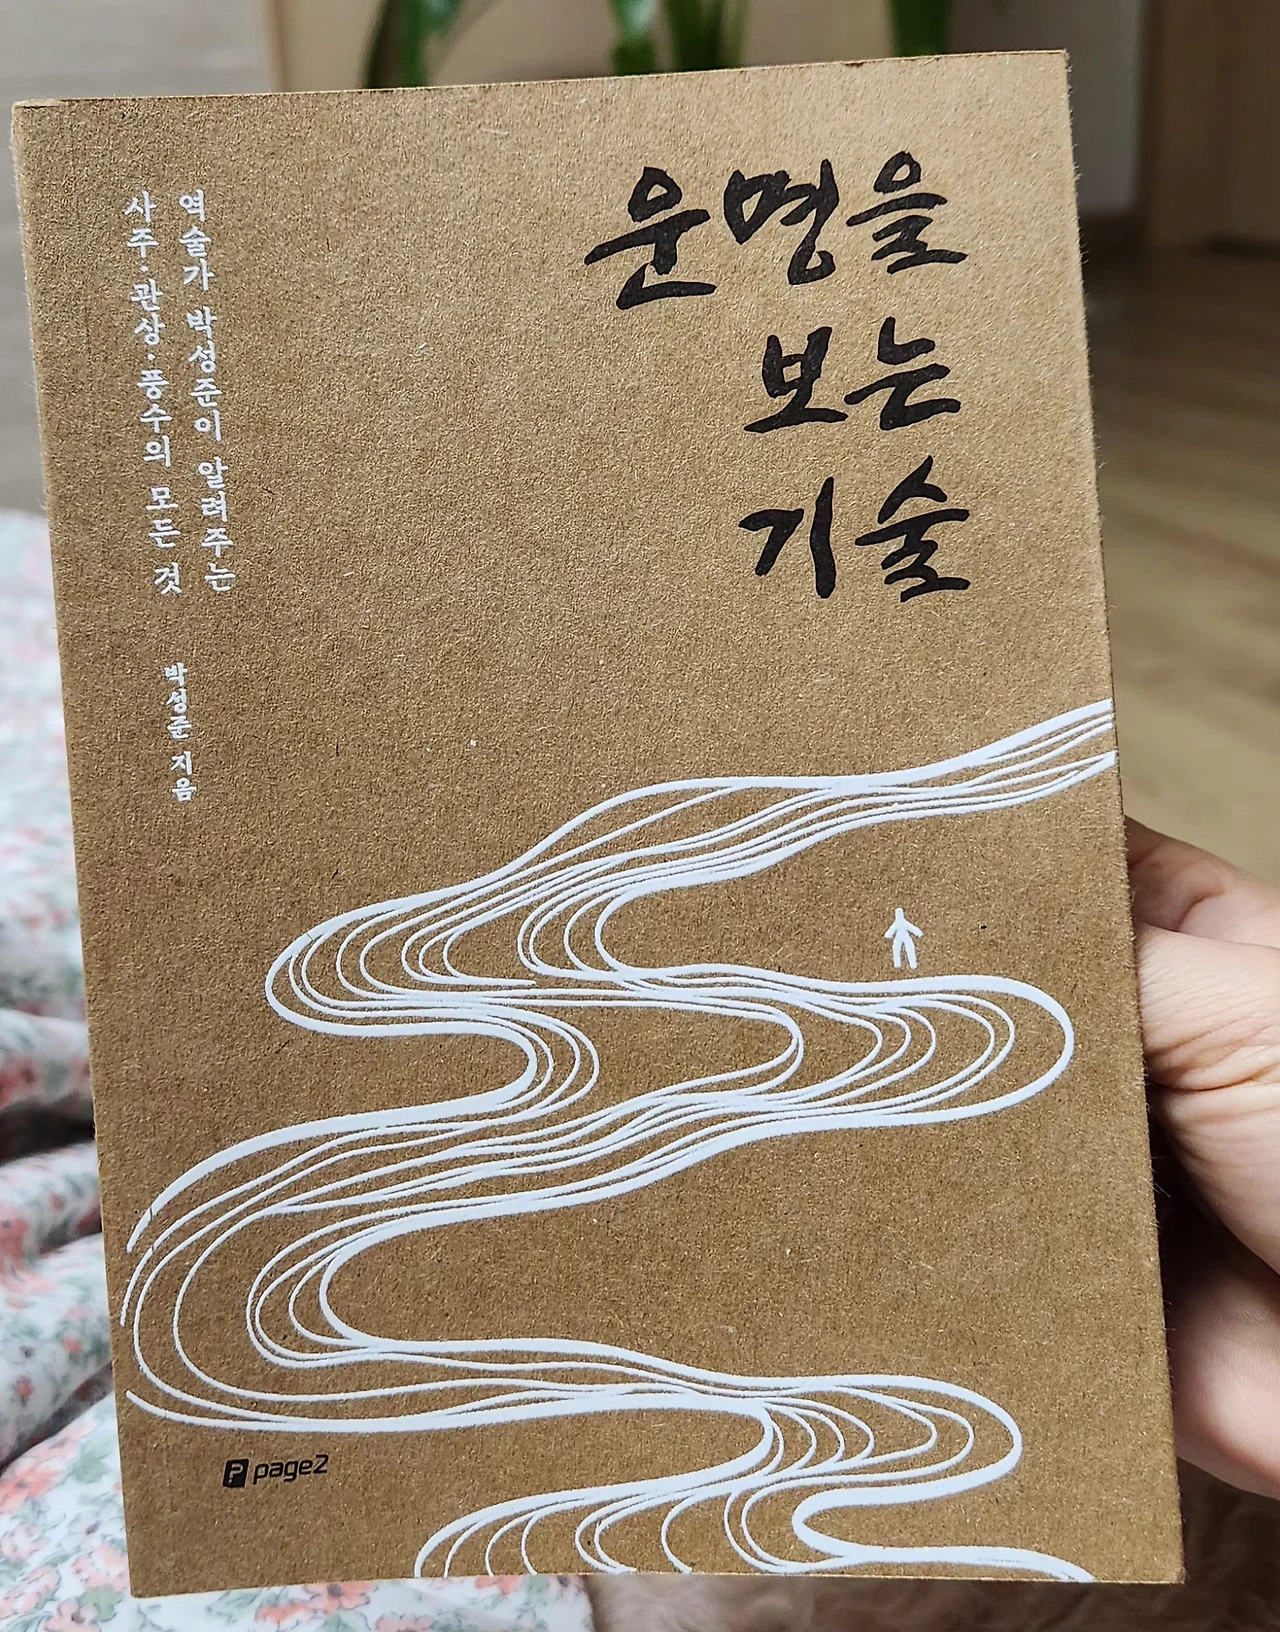 운명을
보는
기술
역술가 박성준이 알려주는
사주·관상·풍수의 모든 것
박성준 지음
page2